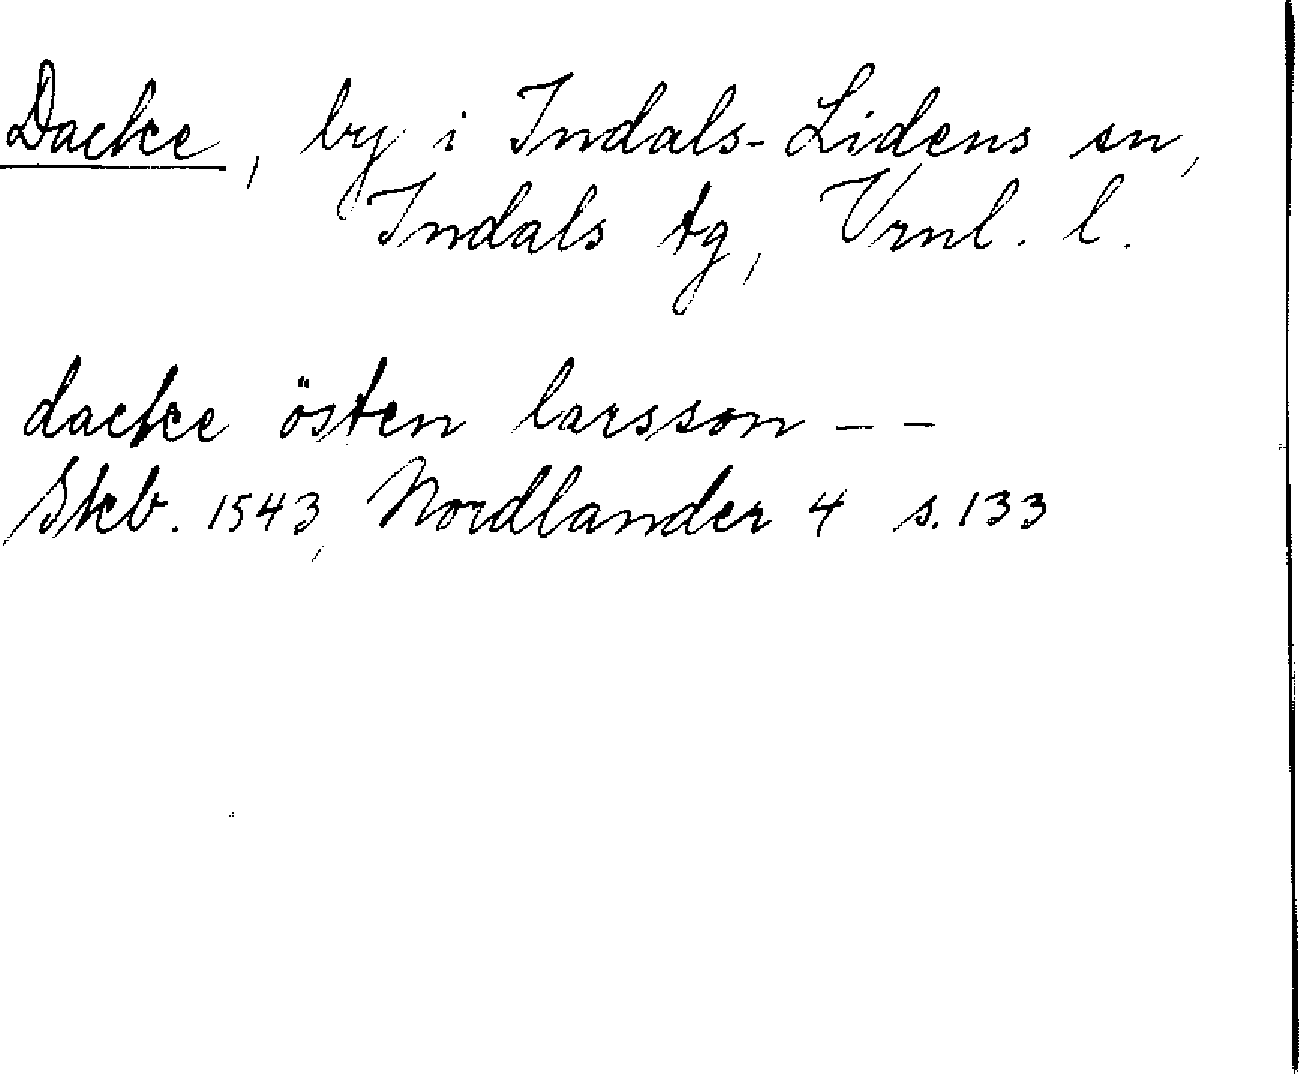 Dacke, by i Indals-Lidens sn,
Indals tg, Vrnl. l.
dacke östen larsson - -
Skb. 1543, Nordlander 4 s. 133